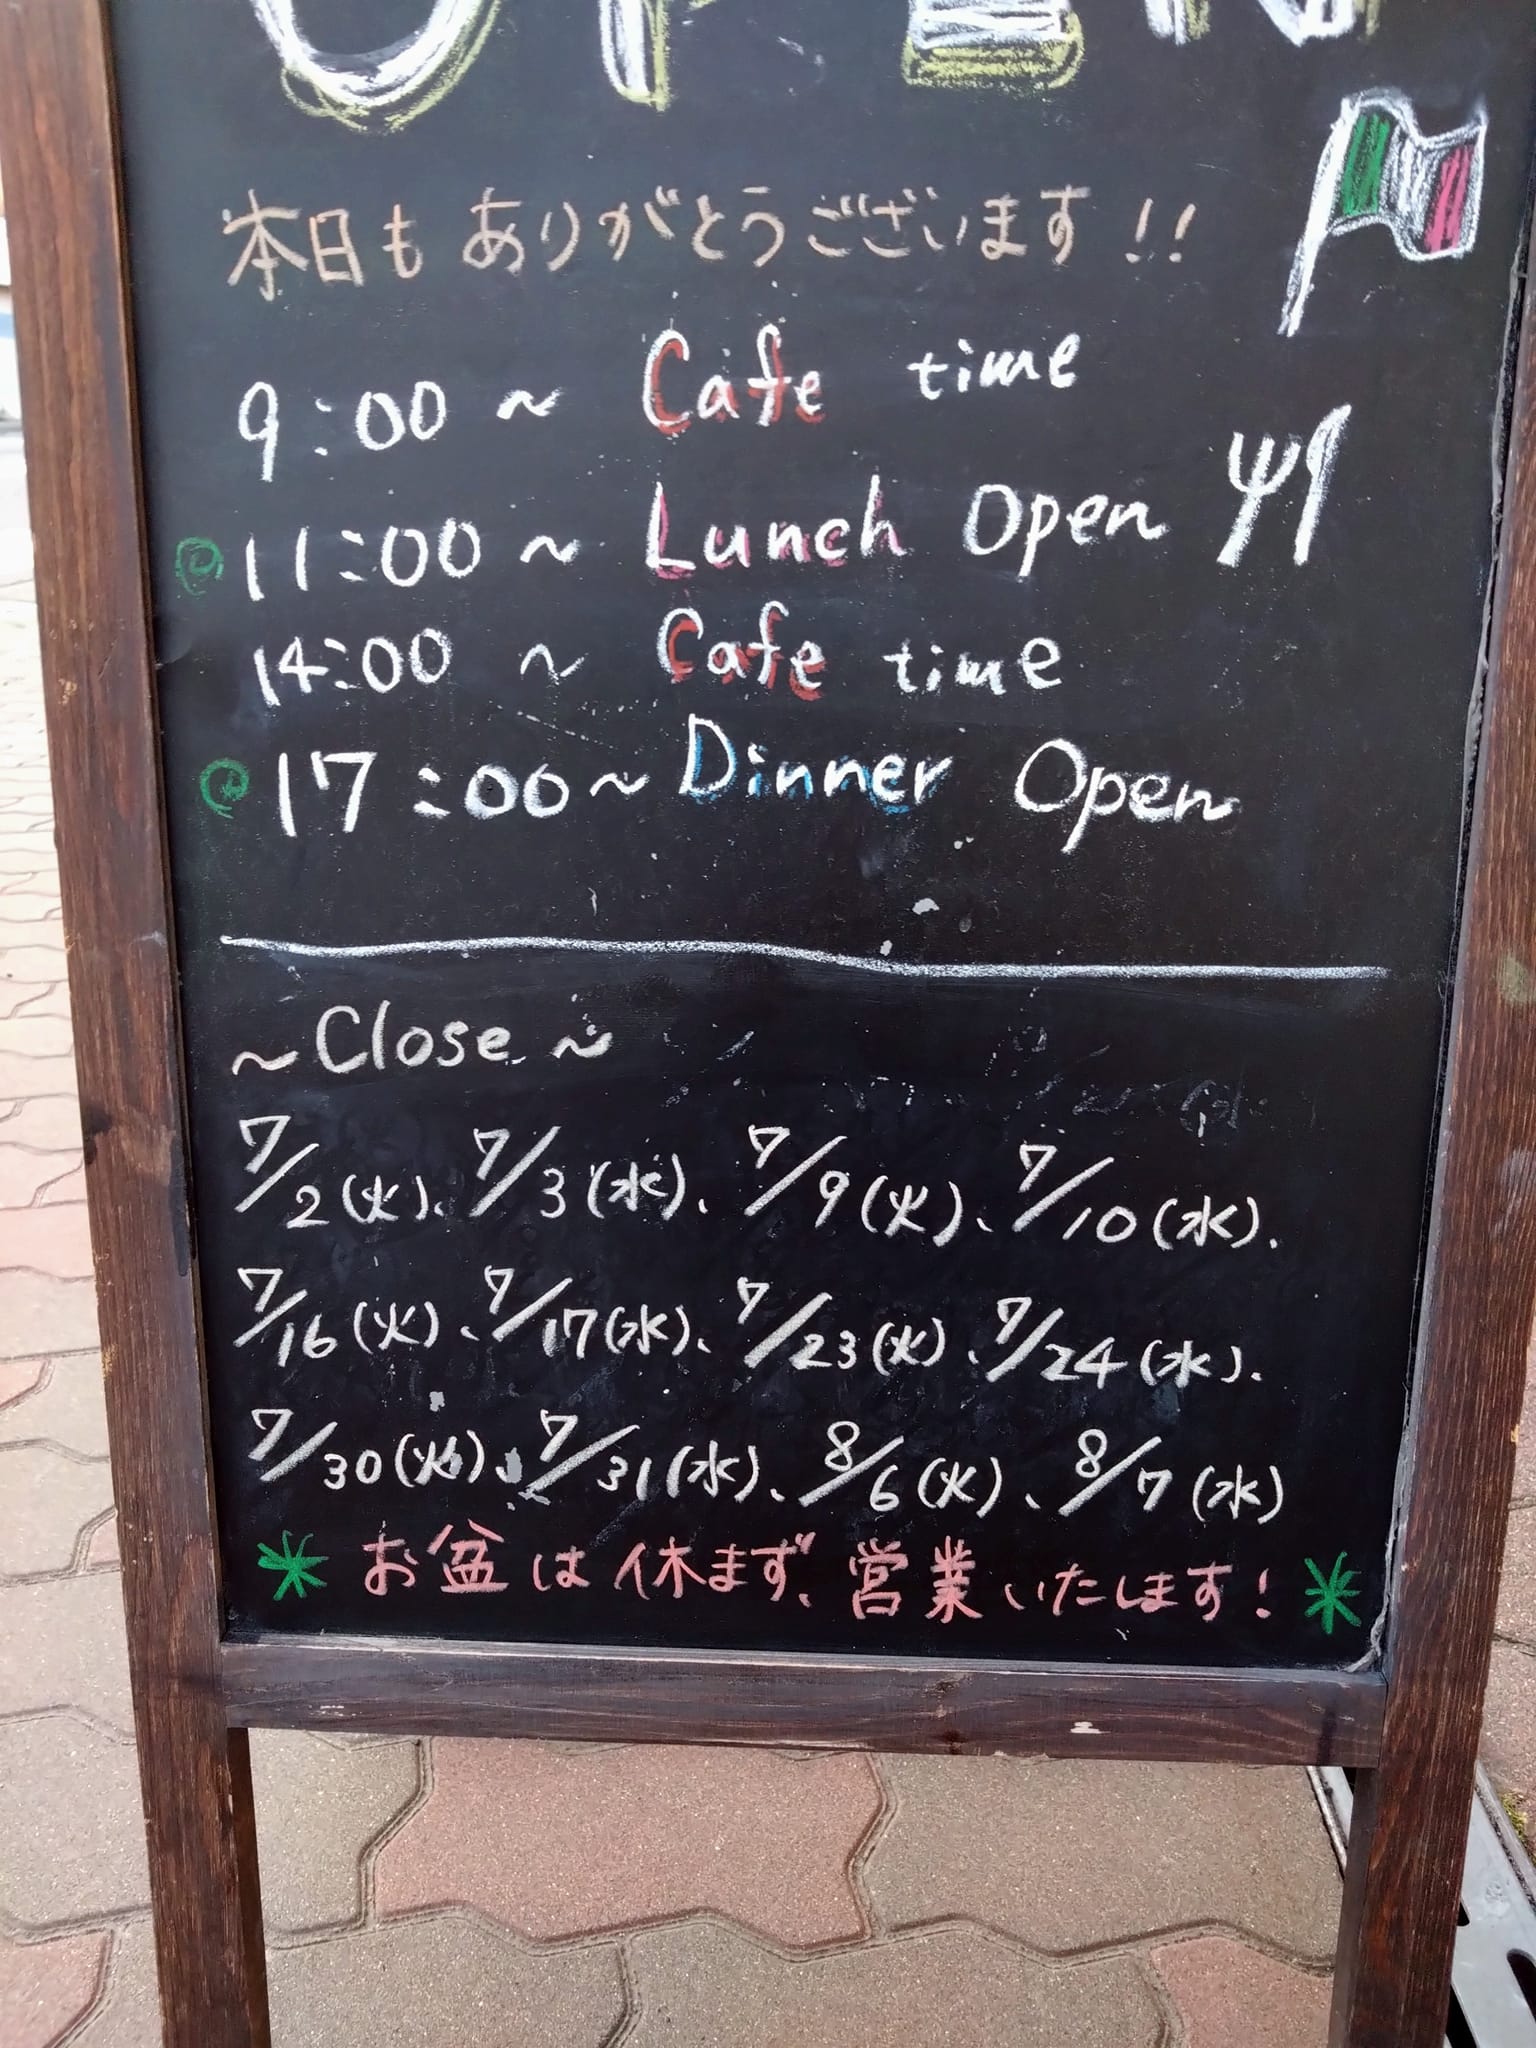 OPEN
本日もありがとうございます!!
9:00～ Cafe time
11:00～ Lunch Open
14:00～ Cafe time
17:00～ Dinner Open
～Close～
7/2(火)、7/3(水)、7/9(火)、7/10(水)、
7/16(火)、7/17(水)、7/23(火)、7/24(水)、
7/30(火)、7/31(水)、8/6(火)、8/7(水)
＊お盆は休まず、営業いたします!＊